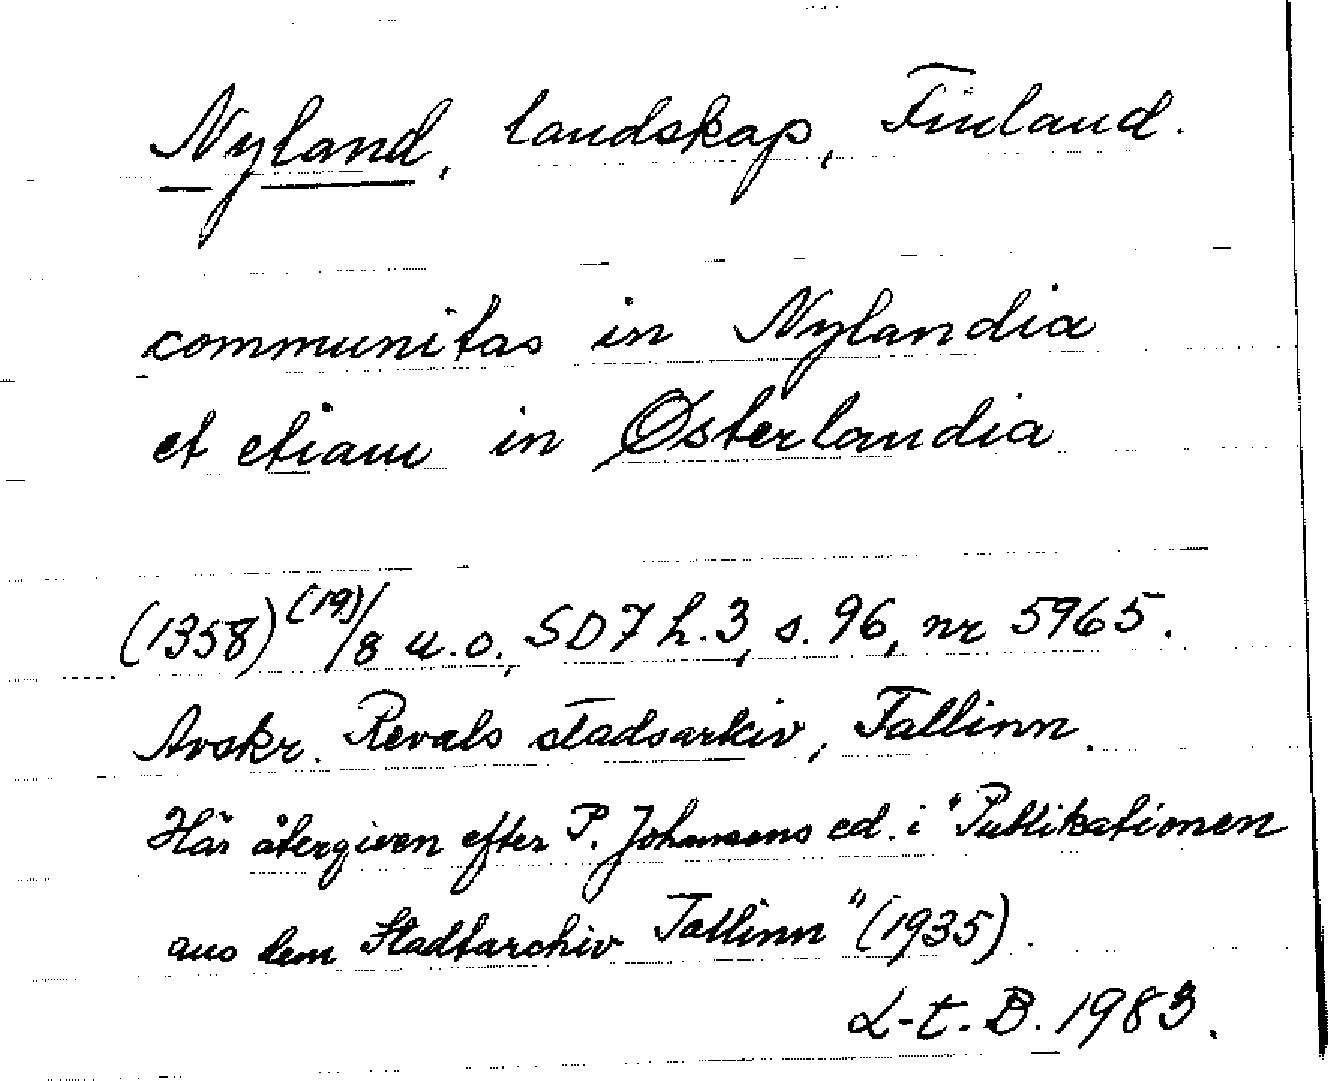 Nyland, landskap, Finland.
communitas in Nylandia
et etiam in Østerlandia
(1358) (19)/8 u.o., SD7 h.3, s. 96, nr 5965.
Avskr. Revals stadsarkiv, Tallinn.
Här återgiven efter P. Johansens ed. i "Publikationen
aus dem Stadtarchiv Tallinn" (1935).
L-t. B. 1983.